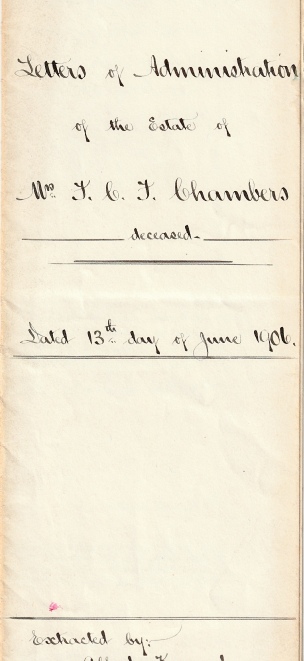 Letters of Administration
of the Estate of
Mrs F. C. F. Chambers
deceased.
Dated 13th day of June 1906.
Extracted by:-